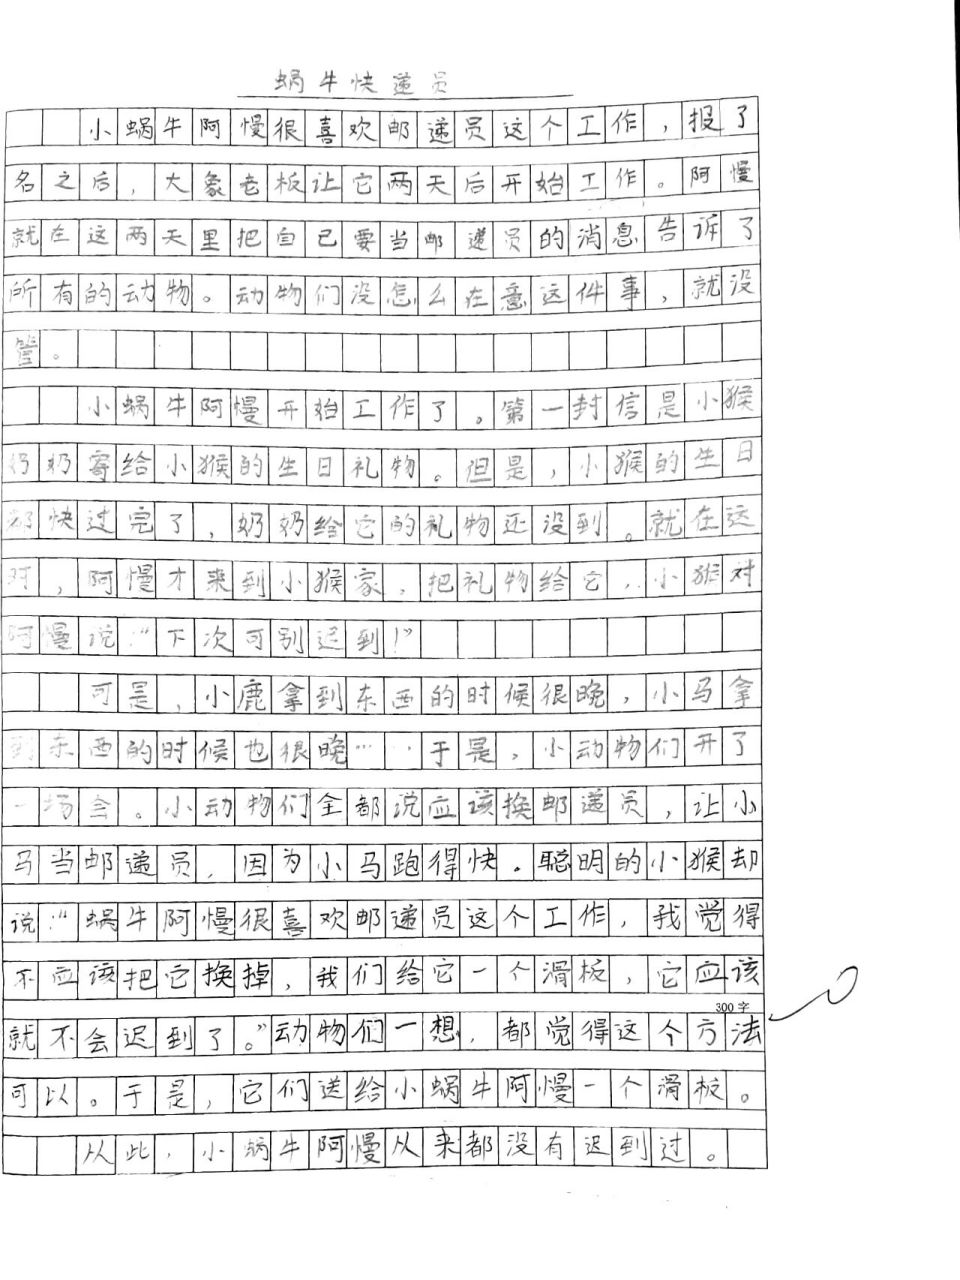 蜗牛快递员
小蜗牛阿慢很喜欢邮递员这个工作，报了
名之后，大象老板让它两天后开始工作。阿慢
就在这两天里把自己要当邮递员的消息告诉了
所有的动物。动物们没怎么在意这件事，就没
管。
小蜗牛阿慢开始工作了。第一封信是小猴
奶奶寄给小猴的生日礼物。但是，小猴的生日
都快过完了，奶奶给它的礼物还没到。就在这
时，阿慢才来到小猴家，把礼物给它，小猴对
阿慢说：“下次可别迟到！”
可是，小鹿拿到东西的时候很晚，小马拿
到东西的时候也很晚……于是，小动物们开了
一场会。小动物们全都说应该换邮递员，让小
马当邮递员，因为小马跑得快。聪明的小猴却
说：“蜗牛阿慢很喜欢邮递员这个工作，我觉得
不应该把它换掉，我们给它一个滑板，它应该
300字
就不会迟到了。”动物们一想，都觉得这个方法
可以。于是，它们送给小蜗牛阿慢一个滑板。
从此，小蜗牛阿慢从来都没有迟到过。